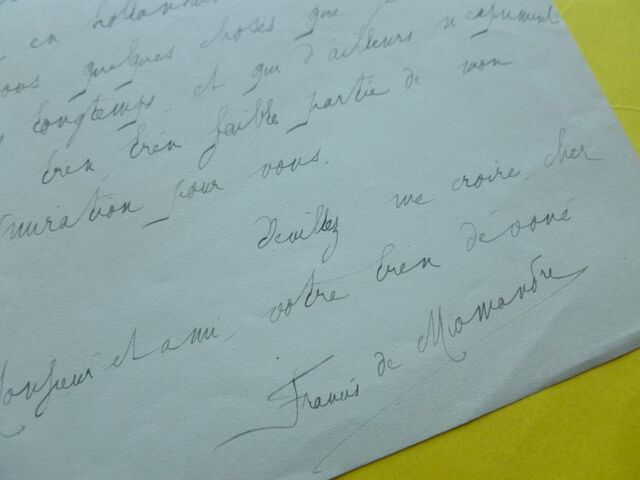 en hollandais
quelques choses que je
longtemps, et qui d'ailleurs n'expriment
bien bien faible partie de mon
admiration pour vous.
Veuillez me croire, cher
Monsieur et ami, votre bien dévoué
Francis de Miomandre